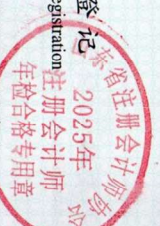 登记
egistration
东省注册会计师协会
2025年
注册会计师
年检合格专用章